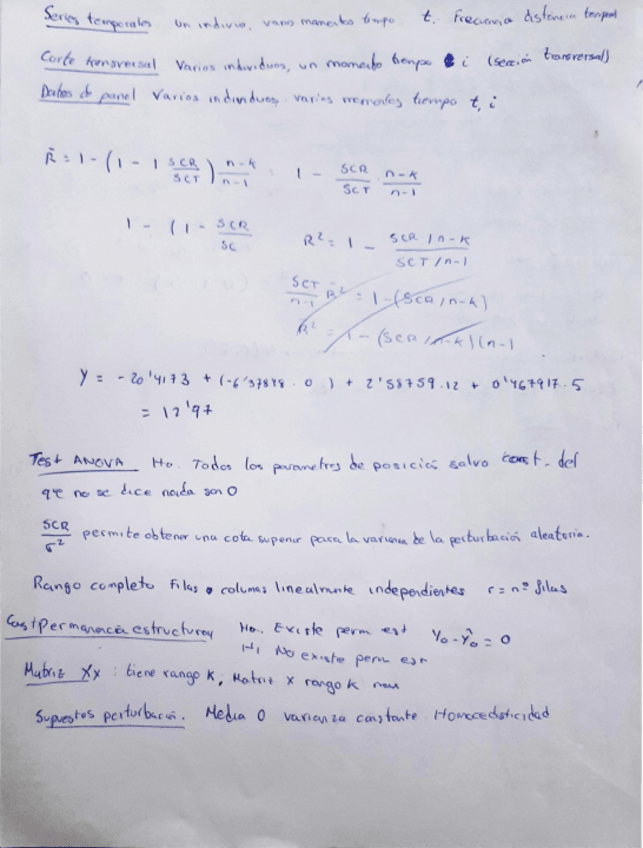 Series temporales un indivio, vario momento timpo t. Frecuencia distancia temporal
Corte transversal Varios individuos, un momento tiempo i (sección transversal)
Datos de panel Varios individuos varios momentos tiempo t, i
R̄ = 1 - (1 - 1 SCR/SCT) n-k/n-1 = 1 - SCR/SCT · n-k/n-1
1 - (1 - SCR/SC
R² = 1 - (SCR/n-k)/(SCT/n-1)
SCT/n-1 R̄² = 1 - (SCR/n-k)
R̄² = 1 - (SCR/n-k)(n-1
Y = -20'4173 + (-6'37848 · 0 ) + 2'58759.12 + 0'467917.5
= 12'97
Test ANOVA Ho. Todos los parametros de posición salvo const. del
que no se dice nada son 0
SCR/σ² permite obtener una cota superior para la varianza de la perturbación aleatoria.
Rango completo Filas o columas linealmente independientes r = nº filas
Cast permanencia estructural Ho. Existe perm est Y₀ - Ŷ₀ = 0
H₁ No existe perm est
Matriz Xx : tiene rango K, Matriz x rango K
Supuestos perturbación. Media 0 varianza constante Homocedasticidad